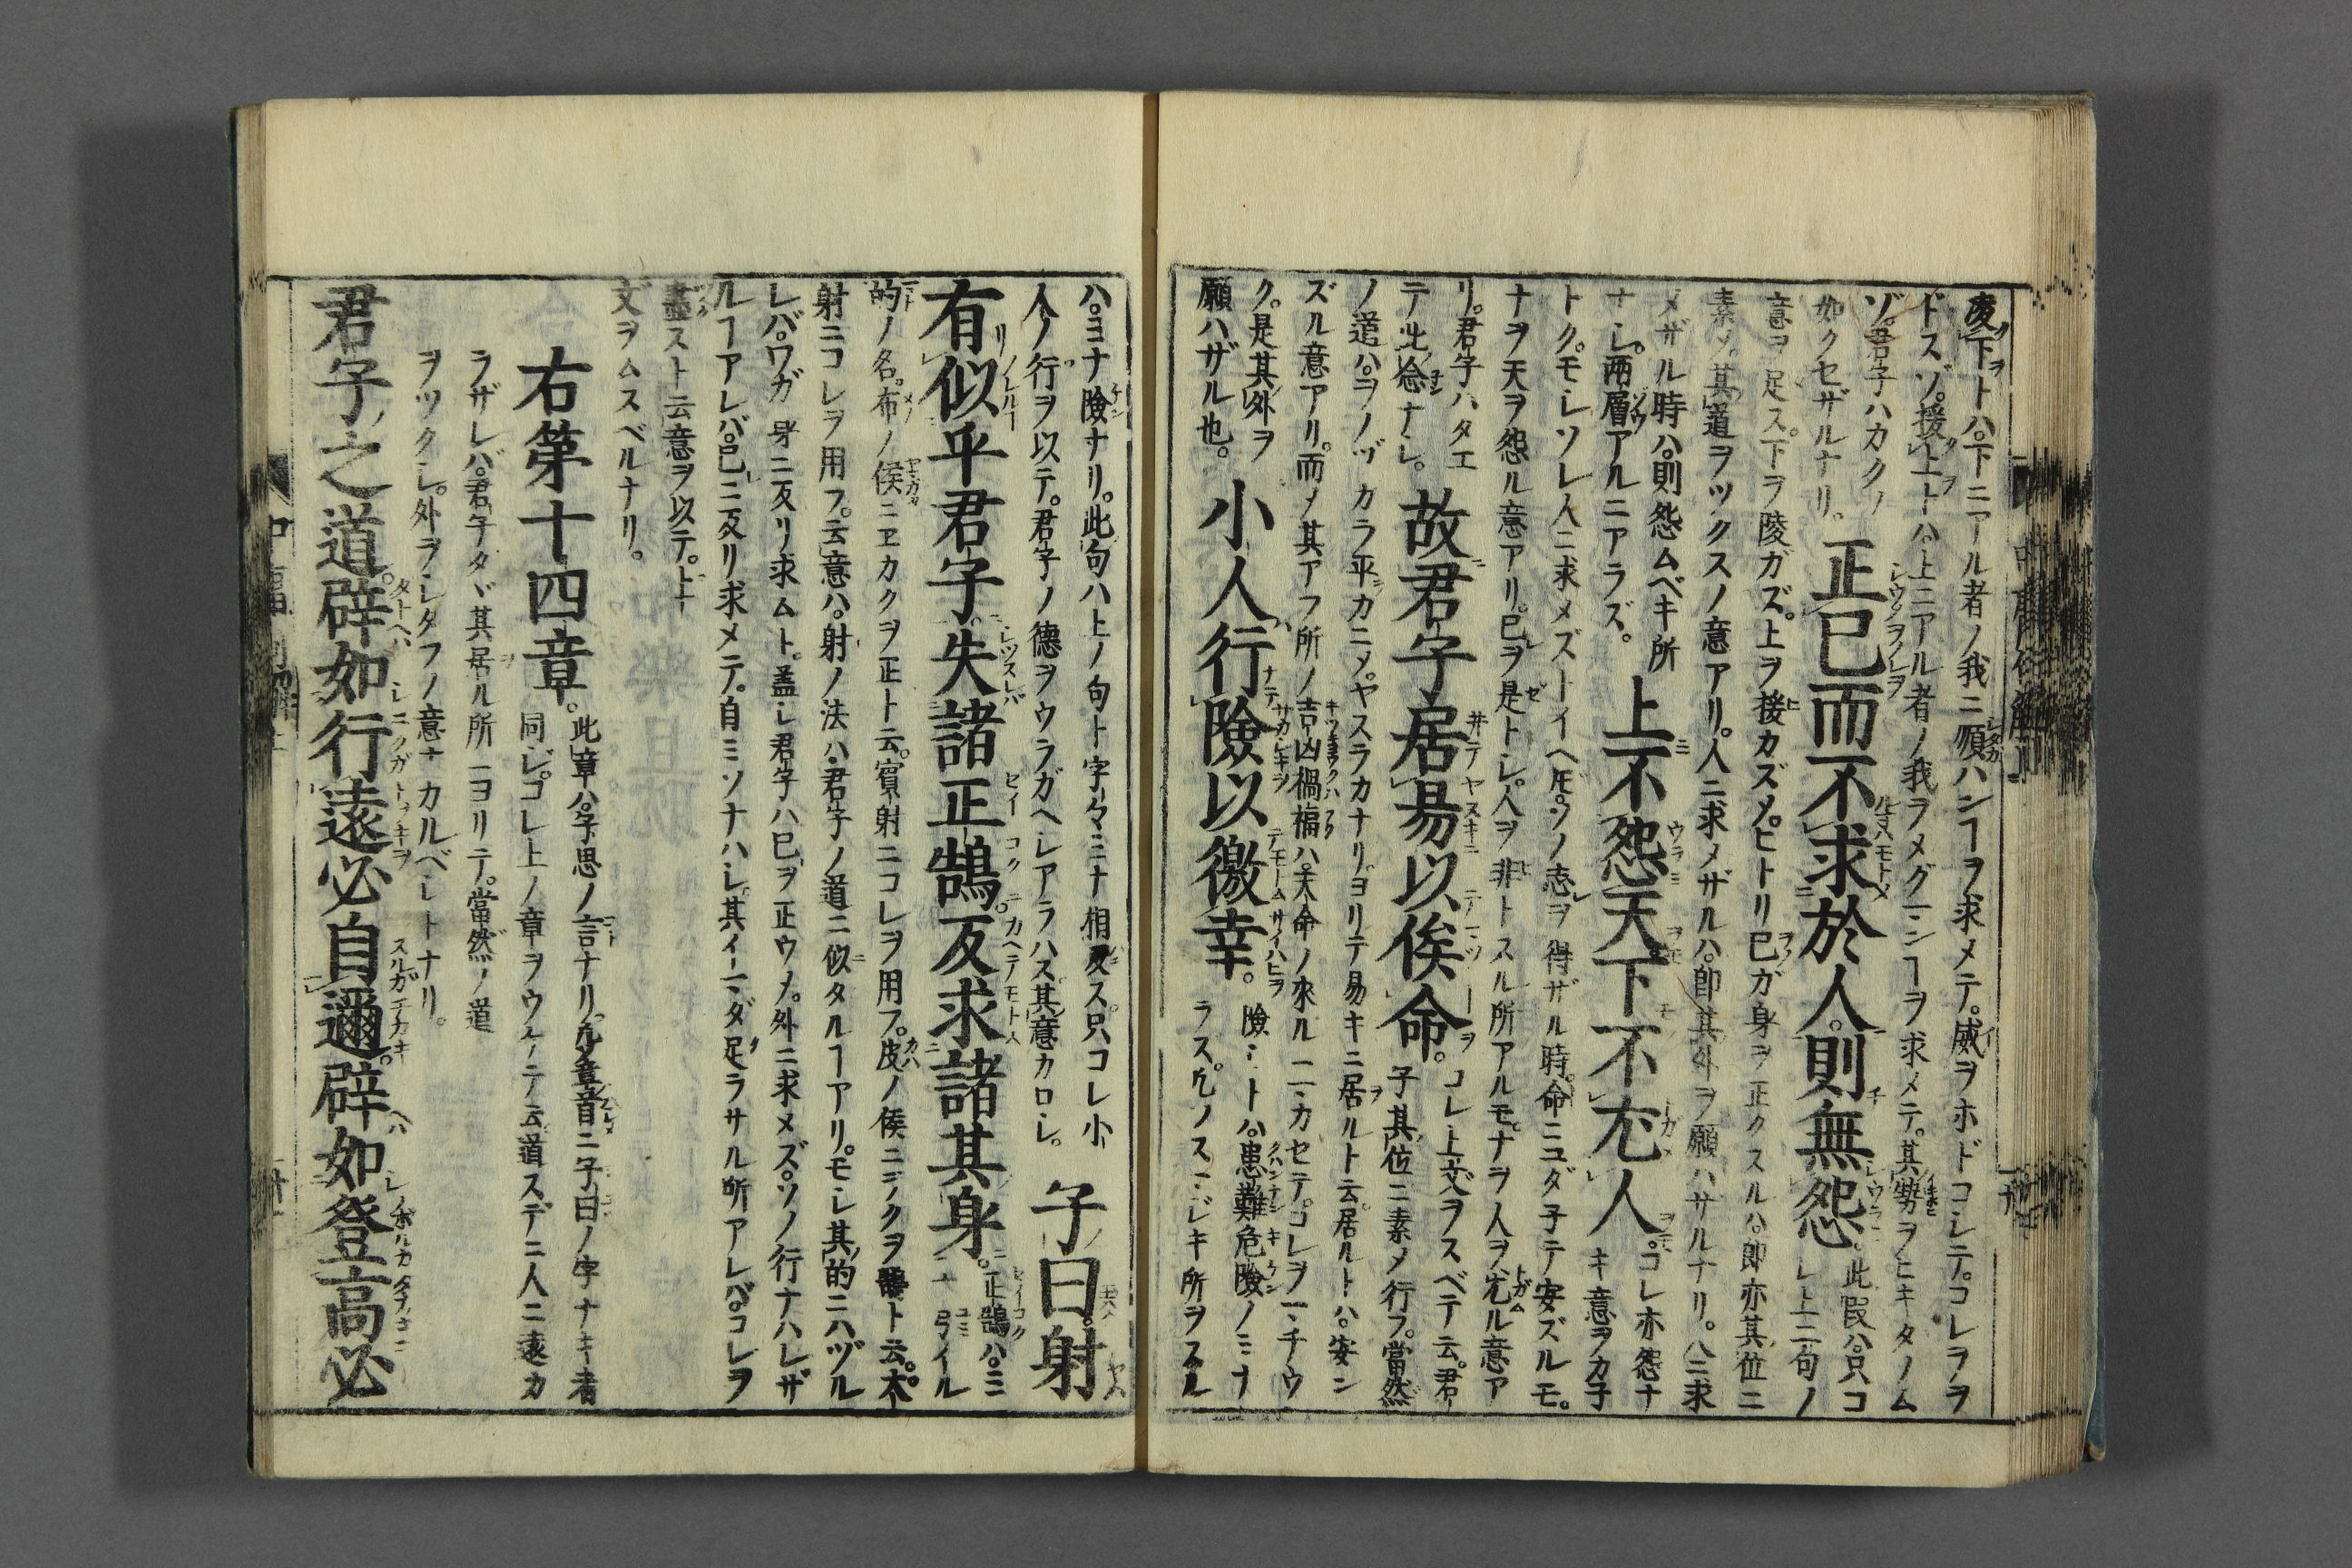 陵下トハ。下ニアル者ノ我ニ順ハンヿヲ求メテ。威ヲホドコシテ。コレヲ
ドスゾ。援上トハ。上ニアル者ノ我ヲメグマンヿヲ求メテ。其勢ヲヒキタノム
ゾ。君子ハカクノ
如クセザルナリ。
正己而不求於人。則無怨。
此段ハ。只コ
レ上二句ノ
意ヲ足ス。下ヲ陵ガズ。上ヲ援カズメ。ヒトリ己ガ身ヲ正クスルハ。即亦其位ニ
素メ。其道ヲツクスノ意アリ。人ニ求メザルハ。即其外ヲ願ハサルナリ。人ニ求
メザル時ハ。則怨ムベキ所
ナシ。両層アルニアラズ。
上不怨天。下不尤人。
コレ亦怨ナ
キ意ヲカ子
トク。モシソレ人ニ求メズトイヘ𪜈。ソノ志ヲ得ザル時。命ニユダ子テ安ズルモ。
ナヲ天ヲ怨ル意アリ。己ヲ是トシ。人ヲ非トスル所アルモ。ナヲ人ヲ尤ル意ア
リ。君子ハタエ
テ此念ナシ。
故君子居易以俟命。
コレ上文ヲスベテ云。君
子其位ニ素メ行フ。當然
ノ道ハ。ヲノヅカラ平カニメ。ヤスラカナリ。ヨリテ易キニ居ルト云。居ルトハ。安ン
ズル意アリ。而メ其アフ所ノ吉凶禍福ハ。天命ノ來ルニマカセテ。コレヲマチウ
ク。是其外ヲ
願ハザル也。
小人行險以徼幸。
險ミトハ。患難危險ノミナ
ラス。凡ノスマジキ所ヲスル
ハ。ミナ險ナリ。此句ハ上ノ句ト字々ミナ相反ス。只コレ小
人ノ行ヲ以テ。君子ノ德ヲウラガヘシアラハス。其意カロシ。
子曰。射
有似乎君子。失諸正鵠。反求諸其身。
正鵠ハ。ミ
ナ弓イル
的ノ名。布ノ侯ニヱカクヲ正ト云。賓射ニコレヲ用フ。皮ノ侯ニ
射ニコレヲ用フ。云意ハ。射ノ法ハ君子ノ道ニ似タルヿアリ。モシ其的ニハヅル
レバ。ワガ身ニ反リ求ムト。蓋シ君子ハ己ヲ正ウメ。外ニ求メズ。ソノ行ナハレザ
ルヿアレバ。己ニ反リ求メテ。自ミソナハシ。其イマダ足ラサル所アレバ。コレヲ
盡スト云意ヲ以テ。上
文ヲムスベルナリ。
右第十四章。
此章ハ。子思ノ言ナリ。凡章首ニ子曰ノ字ナキ者
同ジ。コレ上ノ章ヲウケテ云。道スデニ人ニ遠カ
ラザレバ。君子タヾ其居ル所ニヨリテ。當然ノ道
ヲツクシ。外ヲシタフノ意ナカルベシトナリ。
君子之道。辟如行遠必自邇。辟如登高必